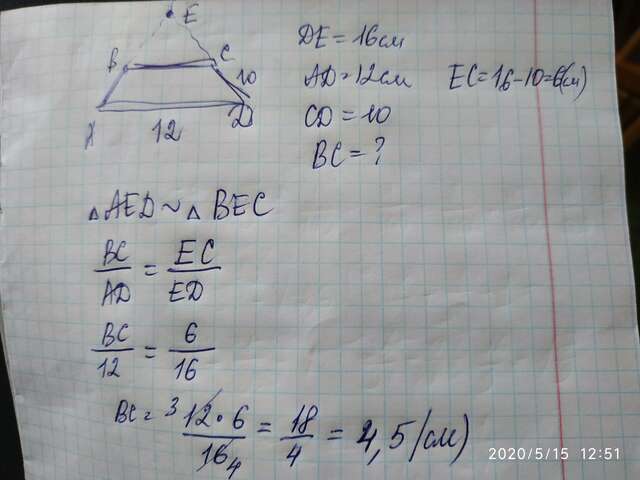 E
B
C
10
A
12
D
DE = 16 см
AD = 12 см
EC = 16 - 10 = 6 (см)
CD = 10
BC = ?
△AED ~ △BEC
BC/AD = EC/ED
BC/12 = 6/16
BC = 3 12·6/16 4 = 18/4 = 4,5 (см)
2020/5/15 12:51